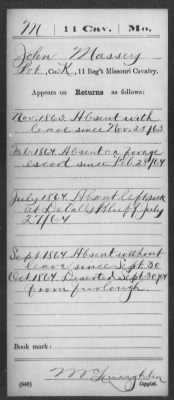 M | 11 Cav. | Mo.
John Massey
Pvt., Co. K, 11 Reg't Missouri Cavalry.
Appears on Returns as follows:
Nov. 1863. Absent with
leave since Nov. 25/63.
Feb. 1864 Absent on forage
escort since Feb. 28/64
July 1864. Absent left sick
at DeValls Bluff July
27/64
Sept 1864 Absent without
leave since Sept. 30
Oct 1864 Deserted Sept. 30/64
from furlough.
Book mark:
(646)
Copyist.